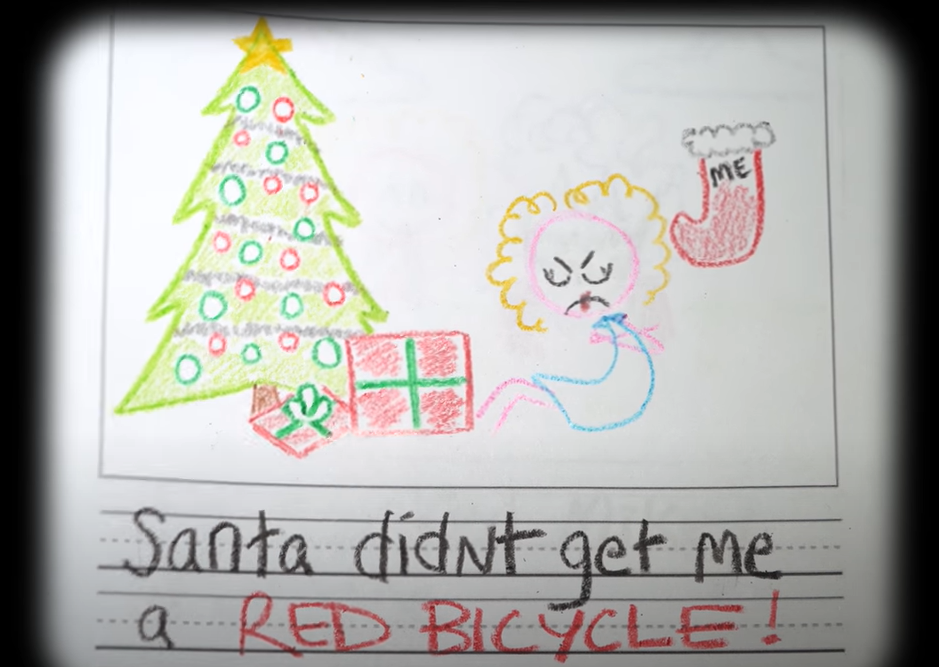 ME
Santa didnt get me
a RED BICYCLE!